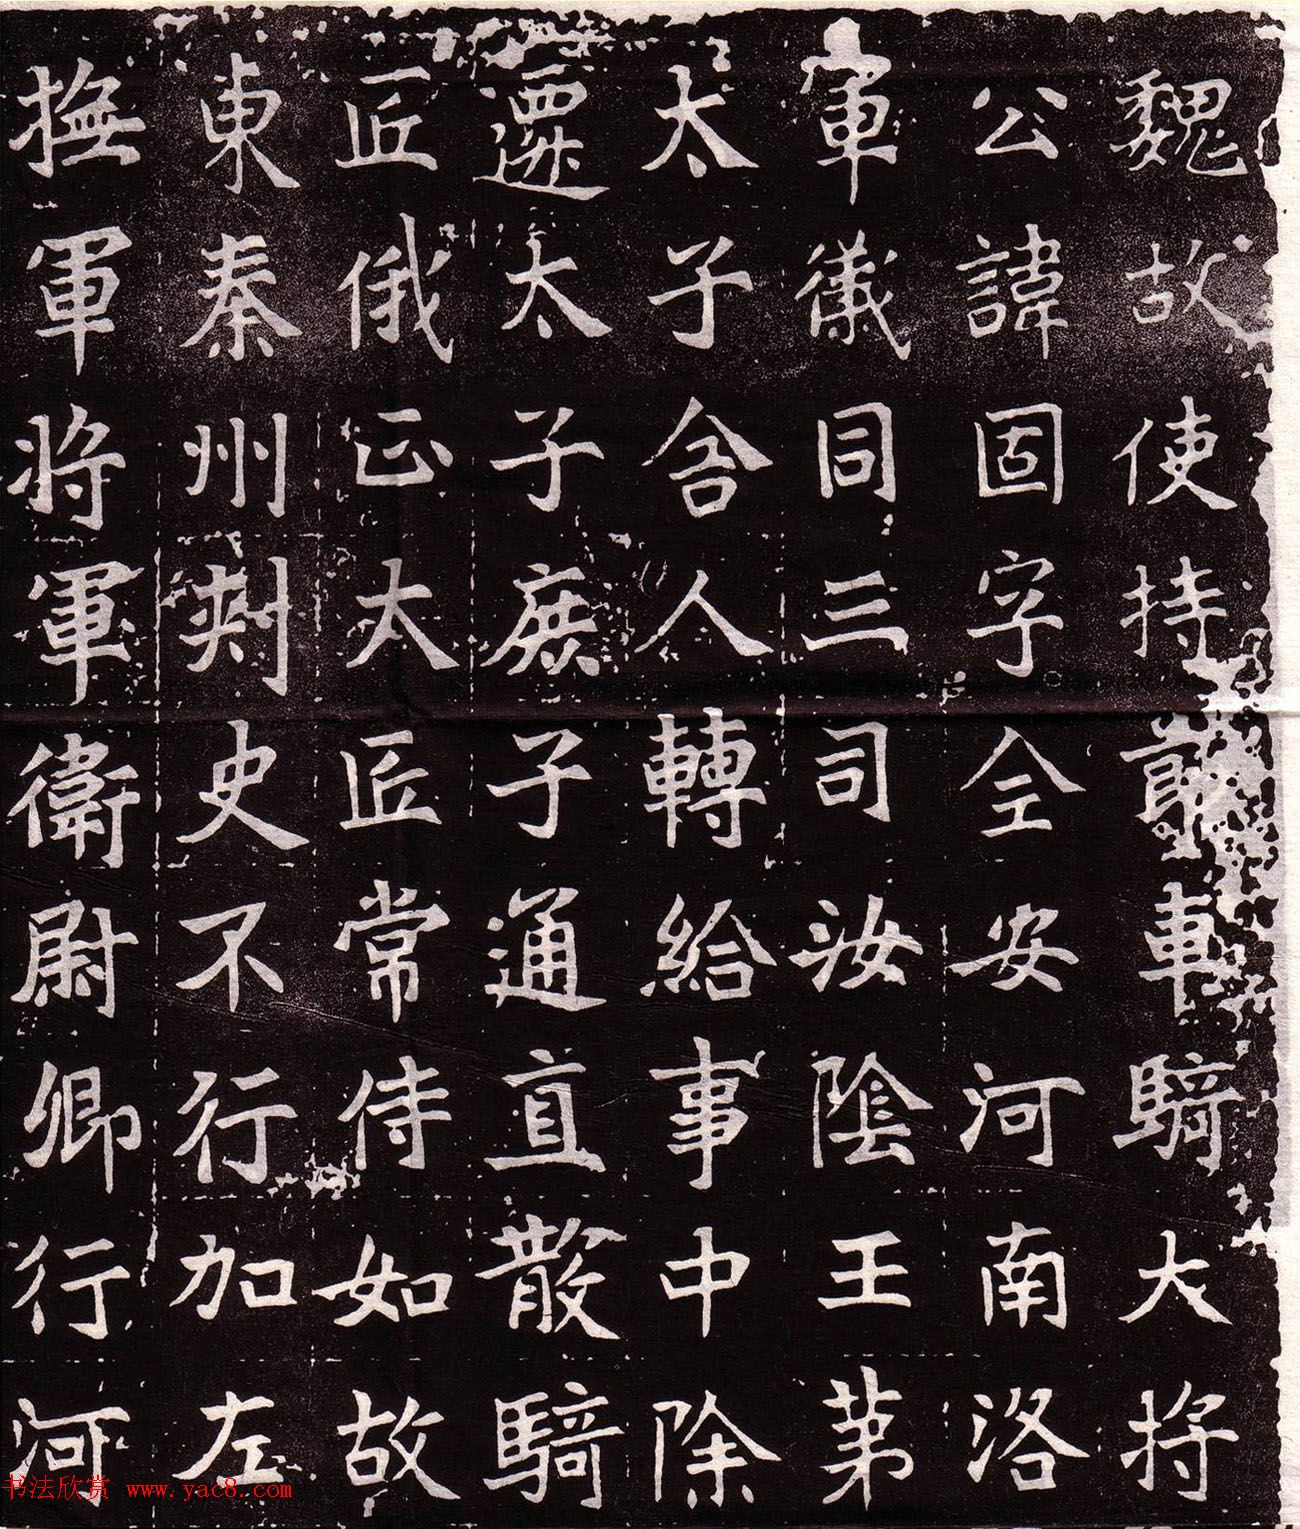 魏故使持節車騎大將
公諱固字全安河南洛
軍儀同三司汝陰王第
太子舍人轉給事中除
遷太子庶子通直散騎
匠俄正大匠常侍如故
東秦州刺史不行加左
撫軍將軍衛尉卿行河
书法欣赏 www.yac8.com